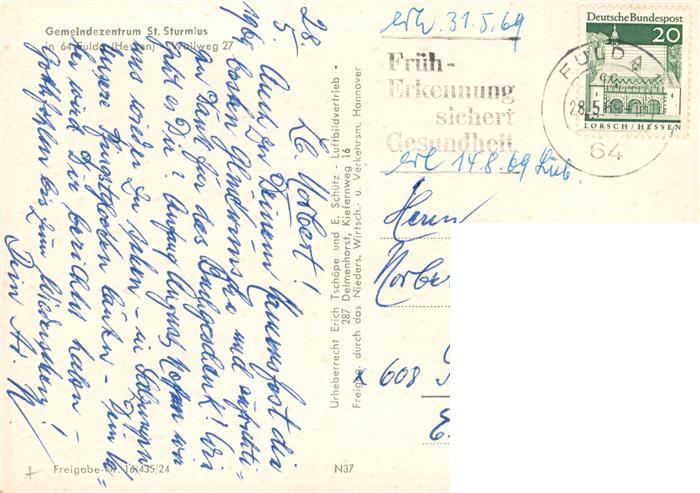 Gemeindezentrum St. Sturmius
in 64 Fulda (Hessen) Wallweg 27
28.
5.
1969
Lb. Norbert!
Auch zu Deinem Namensfest die
besten Glückwünsche und
Dank für das Buchgeschenk! Wie
geht es Dir? Anfang August hoffen wir
uns wieder zu sehen – in
unsere
wird Dir berichtet haben –
bis zum Wiedersehen!
Dein
Freigabe-Nr. 16/435/24
N37
Urheberrecht Erich Tschöpe und E. Schütz - Luftbildvertrieb -
287 Delmenhorst, Kiefernweg 16
Freigeg. durch das Nieders. Wirtsch.- u. Verkehrsm. Hannover
erh. 31.5.69
Früh-
Erkennung
sichert
Gesundheit
FULDA
28.5.
64
Deutsche Bundespost
20
LORSCH/HESSEN
erl. 14.8.69
Herrn
Norber
x 608